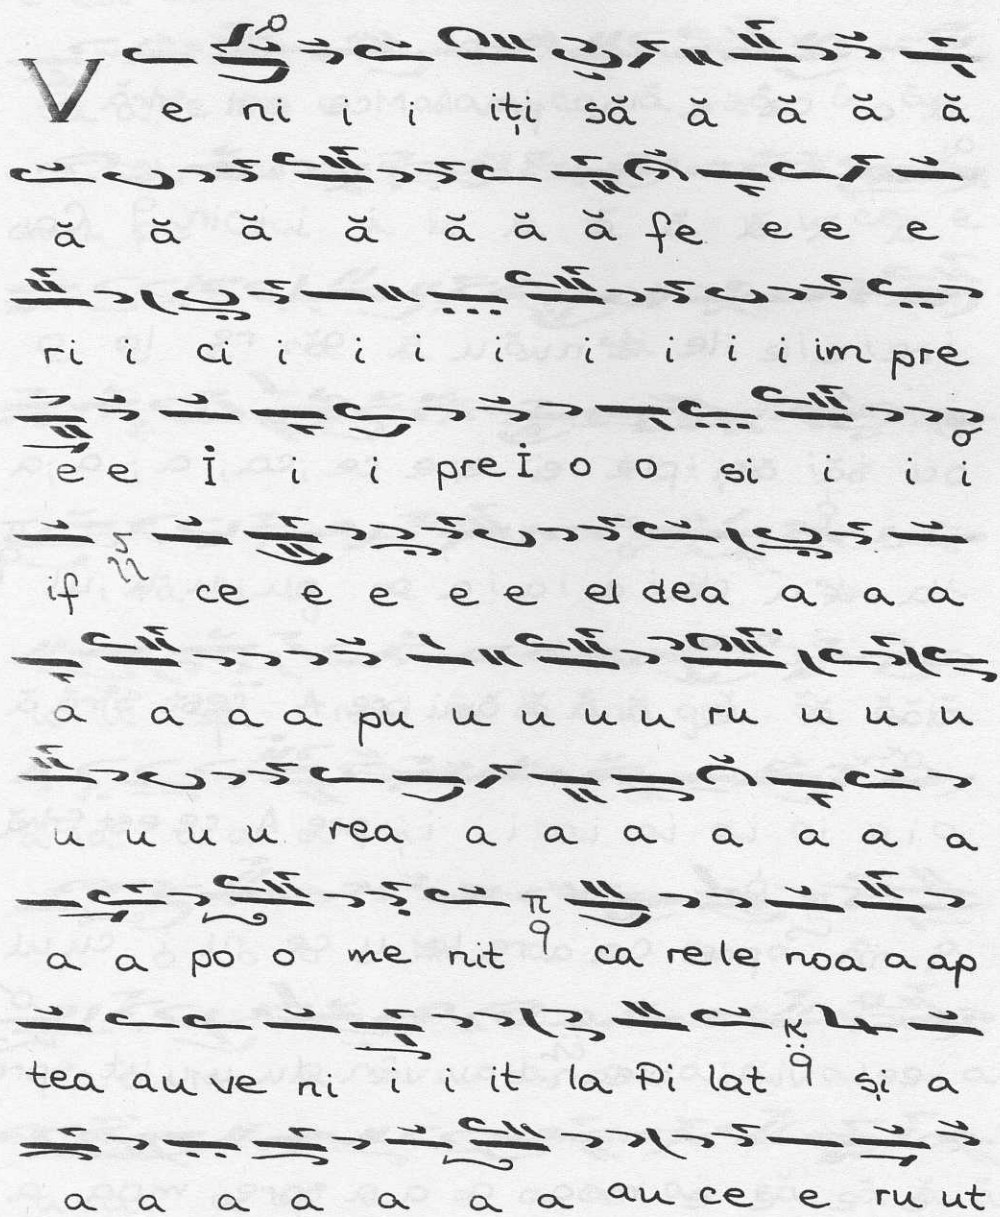 Ve ni i i iți să ă ă ă ă
ă ă ă ă ă ă ă fe e e e
ri i ci i i i i i i i i im pre
e e İ i i pre İ o o si i i i
if ce e e e e el dea a a a
a a a a pu u u u u ru u u u
u u u u rea a a a a a a a
a a po o me nit ca rele noa a ap
tea au ve ni i i it la Pi lat și a
a a a a a a a au ce e ru ut